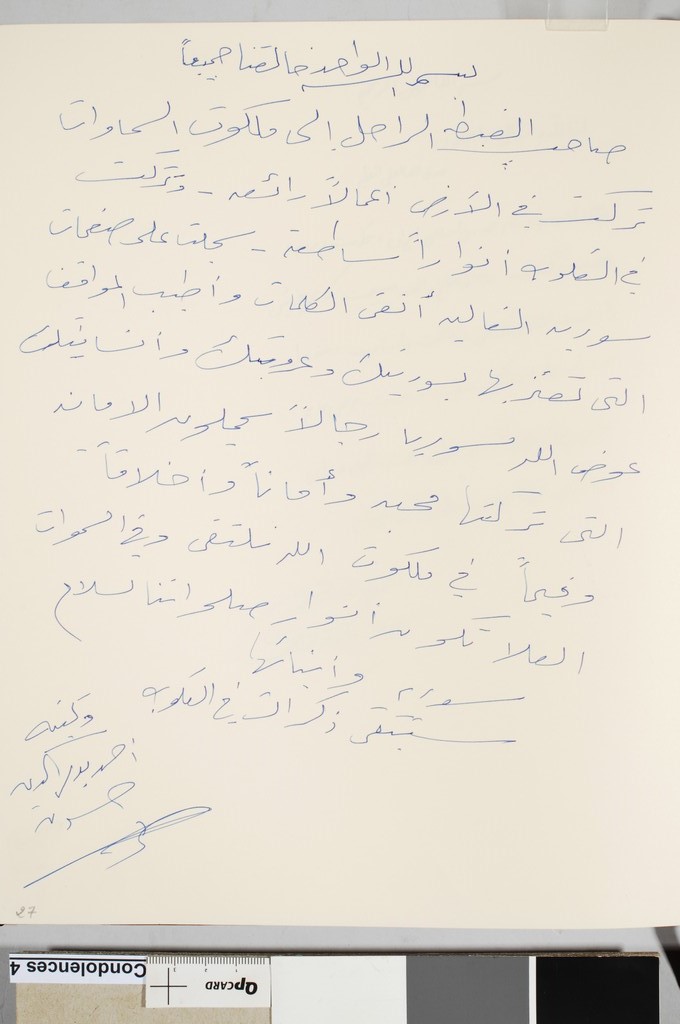 بسم الله الواحد خالقنا جميعاً
صاحب الغبطة الراحل إلى ملكوت السماوات
تركت في الأرض أعمالاً رائعة - وتركت
في القلوب أنواراً ساطعة - سجلت على صفحات
سورية الغالية أنقى الكلمات وأطيب المواقف
التي تعتز بها بسوريتك وعروبتك وإنسانيتك
عوض الله سوريا رجالاً يحملون الامانة
التي تركتها محبة وأماناً وأخلاقاً
وقيماً في ملكوت الله نلتقي وفي السموات
العلا تكون أنوار صلواتنا لسلام
سورية وأبنائها
ستبقى ذكراك في القلوب
أحمد بدر الدين
حسون
27
Condolences 4
QPCARD